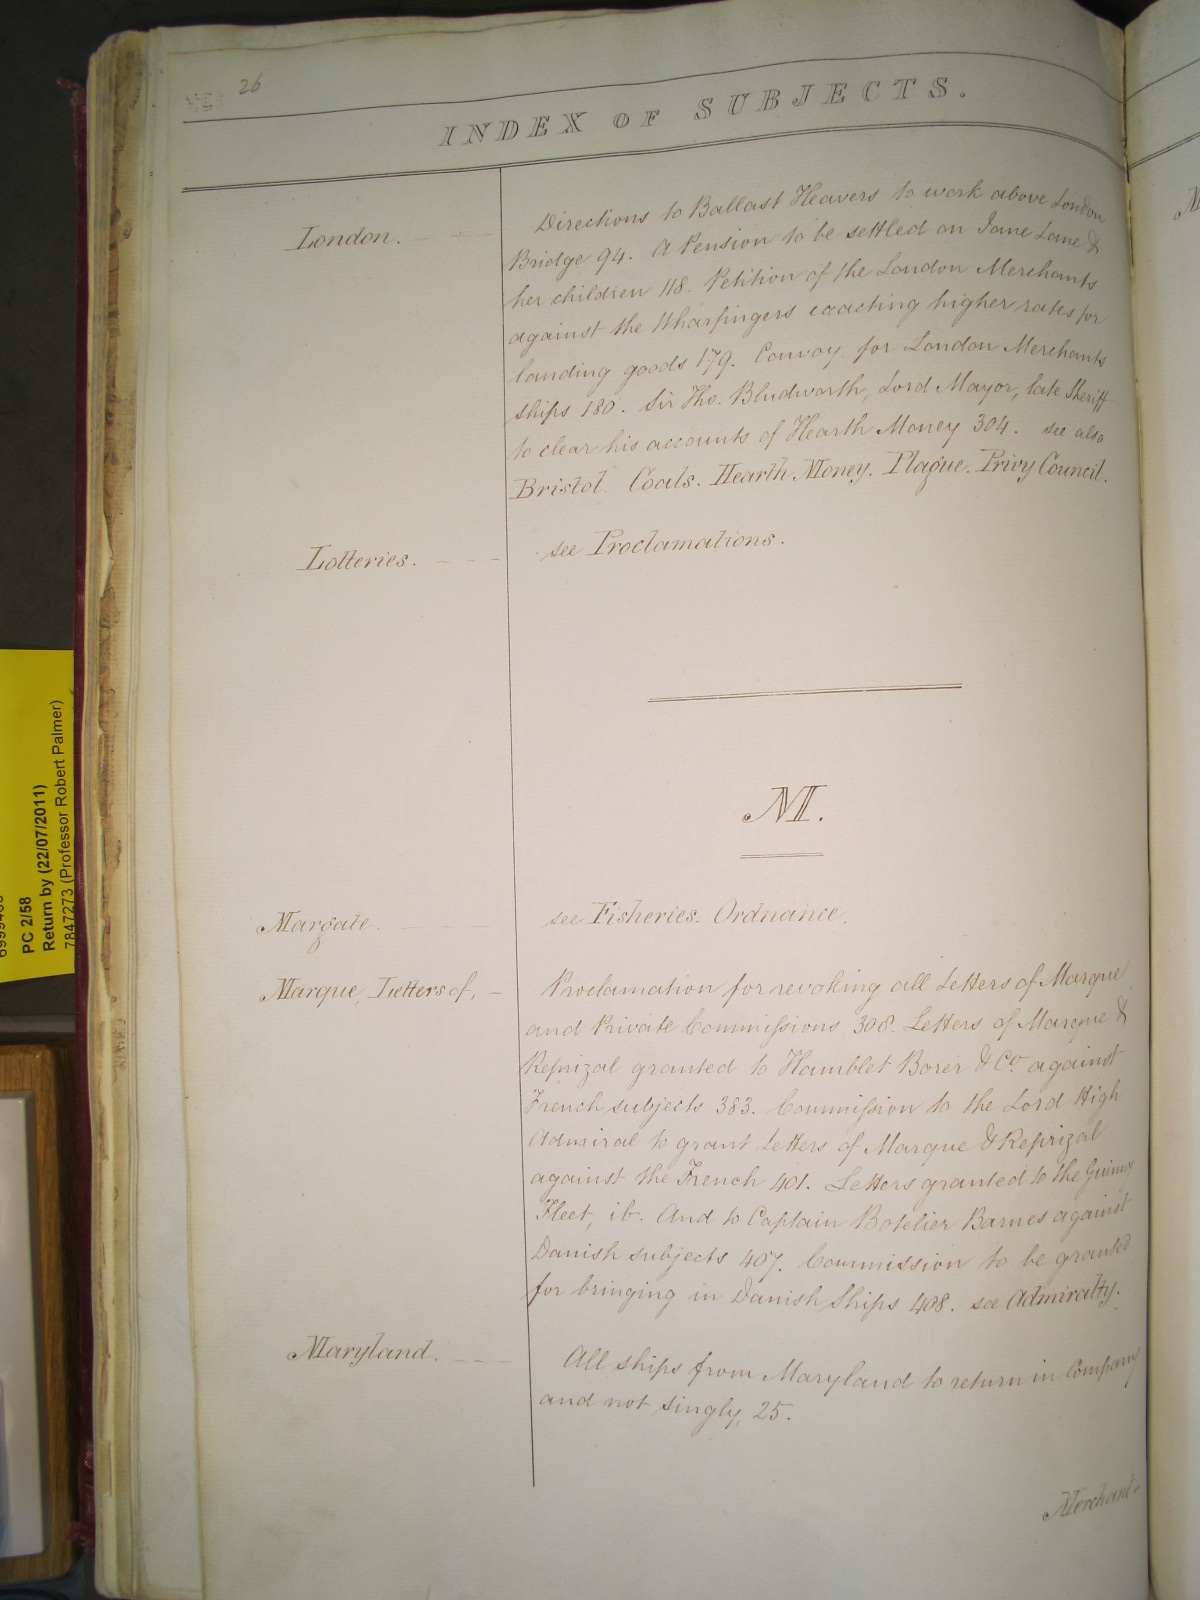 26
INDEX OF SUBJECTS.
London.
Directions to Ballast Heavers to work above London
Bridge 94. A Pension to be settled on Jane Lane &
her children 118. Petition of the London Merchants
against the Wharfingers exacting higher rates for
landing goods 179. Convoy for London Merchants
ships 180. Sir Tho. Bludworth, Lord Mayor, late Sheriff
to clear his accounts of Hearth Money 304. see also
Bristol. Coals. Hearth Money. Plague. Privy Council.
Lotteries.
see Proclamations.
M.
Margate.
see Fisheries. Ordnance.
Marque, Letters of,
Proclamation for revoking all Letters of Marque
and Private Commissions 308. Letters of Marque &
Reprizal granted to Hamblet Borer & Co. against
French subjects 383. Commission to the Lord High
Admiral to grant Letters of Marque & Reprizal
against the French 401. Letters granted to the Guinny
Fleet, ib. And to Captain Botelier Barnes against
Danish subjects 407. Commission to be granted
for bringing in Danish Ships 408. see Admiralty.
Maryland.
All ships from Maryland to return in Company
and not singly, 25.
Merchant-
PC 2/58
Return by (22/07/2011)
7847273 (Professor Robert Palmer)